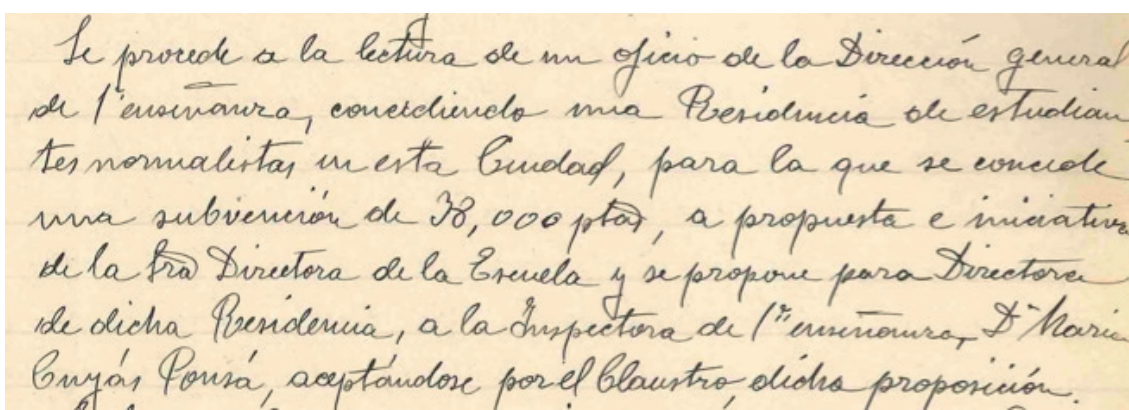 Se procede a la lectura de un oficio de la Dirección general
de 1ª enseñanza, concediendo una Residencia de estudian
tes normalistas en esta Ciudad, para la que se concede
una subvención de 38,000 ptas, a propuesta e iniciativa
de la Sra Directora de la Escuela y se propone para Directora
de dicha Residencia, a la Inspectora de 1ª enseñanza, Dª Maria
Cuyás Ponsá, aceptándose por el Claustro, dicha proposición.